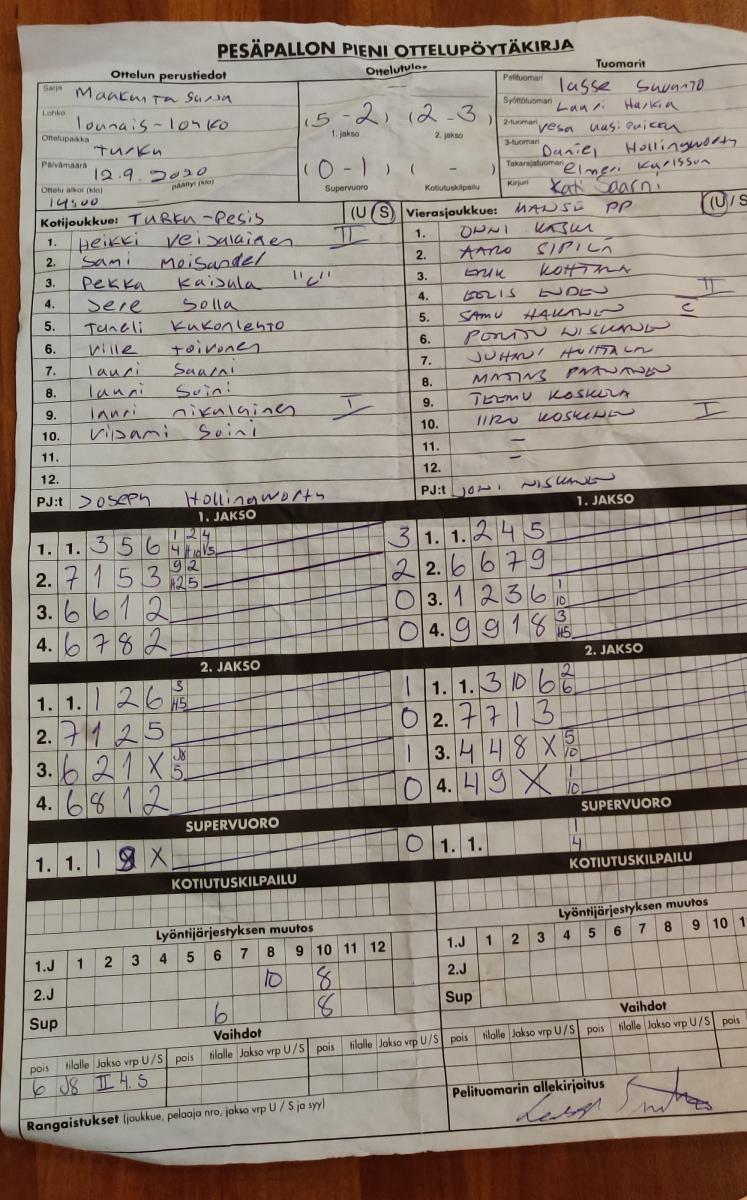 PESÄPALLON PIENI OTTELUPÖYTÄKIRJA
Ottelun perustiedot
Ottelutulos
Tuomarit
Sarja Maakunta sarja
Lohko lounais-lohko
Ottelupaikka Turku
Päivämäärä 12.9.2020
Ottelu alkoi (klo) 14:00 päättyi (klo)
(5-2) (2-3)
1. jakso 2. jakso
(0-1) ( - )
Supervuoro Kotiutuskilpailu
Pelituomari lasse Suvanto
Syöttötuomari Lauri Harkia
2-tuomari vesa
3-tuomari Daniel Hollingworth
Takarajatuomari elmeri Karlsson
Kirjuri Kati Saarni
Kotijoukkue: TURKU-Pesis (U/S)
1. Heikki veijalainen II
2. Sami Moisander
3. Pekka Kaijala "c"
4. Jere Solla
5. Taneli Kukonlehto
6. ville toivonen
7. lauri Saarni
8. lauri Soini
9. lauri nikulainen I
10. viljami Soini
11.
12.
PJ:t Joseph Hollingworth
Vierasjoukkue: MANSE PP (U/S
1. ONNI
2. AARO SIPILÄ
3. ERIK KOHTALA
4. EELIS ENDEN II
5. SAMU HAKANEN C
6. PONTTU NISKANEN
7. JUHANI HUHTALA
8. MATIAS PAANANEN
9. TEEMU KOSKELA
10. IIRO KOSKINEN I
11. –
12. –
PJ:t JONI NISKANEN
1. JAKSO
1. 1. 3 5 6 1 2 4 3
2. 7 1 5 3 9 2 2
3. 6 6 1 2 0
4. 6 7 8 2 0
1. JAKSO
1. 1. 2 4 5
2. 6 6 7 9
3. 1 2 3 6 1 10
4. 9 9 1 8 3 H5
2. JAKSO
1. 1. 1 2 6 3 H5 1
2. 7 1 2 5 0
3. 6 2 1 X J8 5 1
4. 6 8 1 2 0
2. JAKSO
1. 1. 3 10 6 2 6
2. 7 7 1 3
3. 4 4 8 X 5 10
4. 4 9 X 1 10
SUPERVUORO
1. 1. 1 X 0
SUPERVUORO
1. 1. 1 4
KOTIUTUSKILPAILU
KOTIUTUSKILPAILU
Lyöntijärjestyksen muutos
1.J 1 2 3 4 5 6 7 8 9 10 11 12
2.J 10 8
Sup 6 8
Lyöntijärjestyksen muutos
1.J 1 2 3 4 5 6 7 8 9 10 1
2.J
Sup
Vaihdot
pois tilalle Jakso vrp U/S pois tilalle Jakso vrp U/S pois tilalle Jakso vrp U/S
6 J8 II 4. S
Vaihdot
pois tilalle Jakso vrp U/S pois tilalle Jakso vrp U/S pois
Rangaistukset (joukkue, pelaaja nro, jakso vrp U / S ja syy)
Pelituomarin allekirjoitus